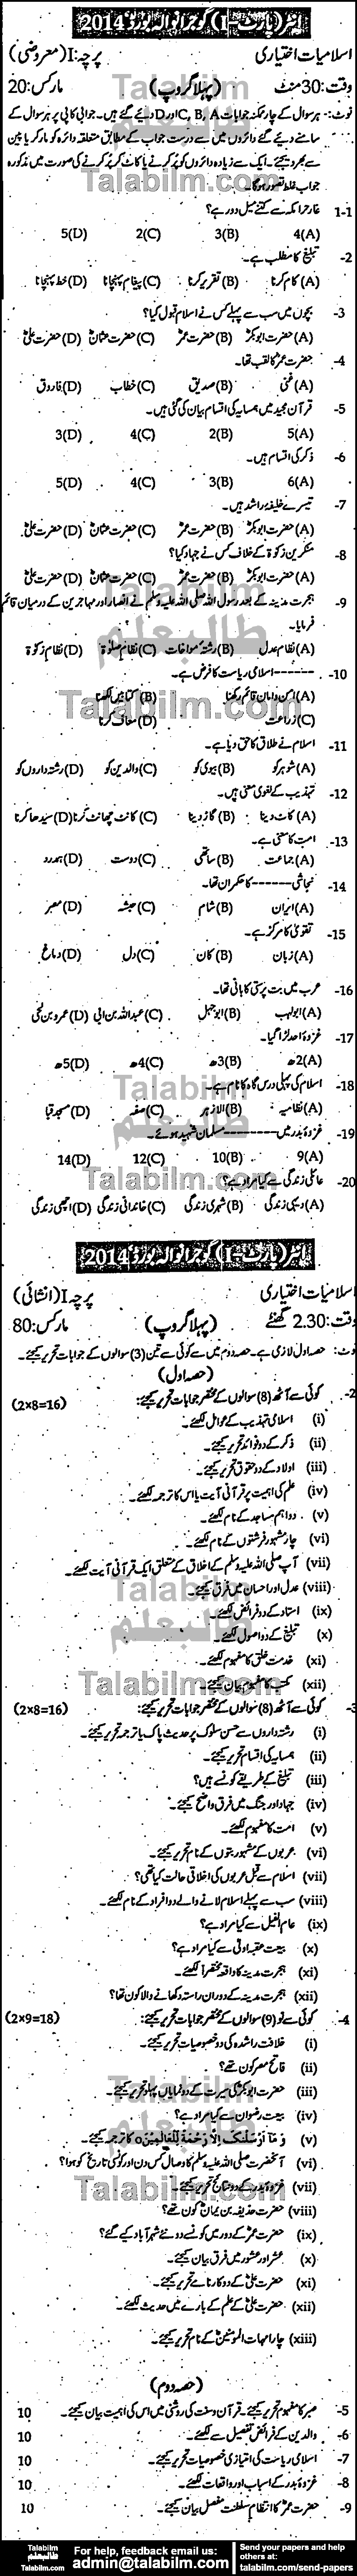 انٹر (پارٹ-I) گوجرانوالہ بورڈ 2014
اسلامیات اختیاری پرچہ: I (معروضی)
وقت: 30 منٹ (پہلا گروپ) مارکس: 20
نوٹ:- ہر سوال کے چار ممکنہ جوابات C, B, A اور D دیئے گئے ہیں۔ جوابی کاپی پر ہر سوال کے
سامنے دیئے گئے دائروں میں سے درست جواب کے مطابق متعلقہ دائرہ کو مارکر یا پین
سے بھر دیجئے۔ ایک سے زیادہ دائروں کو پُر کرنے یا کاٹ کر پُر کرنے کی صورت میں مذکورہ
جواب غلط تصور ہوگا۔
1-1 غار حرا مکہ سے کتنے میل دور ہے؟
(A) 4 (B) 3 (C) 2 (D) 5
-2 تبلیغ کا مطلب ہے۔
(A) کام کرنا (B) تقریر کرنا (C) پیغام پہنچانا (D) خط پہنچانا
-3 بچوں میں سب سے پہلے کس نے اسلام قبول کیا؟
(A) حضرت ابوبکرؓ (B) حضرت عمرؓ (C) حضرت عثمانؓ (D) حضرت علیؓ
-4 حضرت عمرؓ کا لقب تھا۔
(A) غنی (B) صدیق (C) خطاب (D) فاروق
-5 قرآن مجید میں ہمسایہ کی اقسام بیان کی گئی ہیں۔
(A) 5 (B) 2 (C) 4 (D) 3
-6 ذکر کی اقسام ہیں۔
(A) 6 (B) 3 (C) 4 (D) 5
-7 تیسرے خلیفہ راشد ہیں۔
(A) حضرت ابوبکرؓ (B) حضرت عمرؓ (C) حضرت عثمانؓ (D) حضرت علیؓ
-8 منکرین زکوٰۃ کے خلاف کس نے جہاد کیا؟
(A) حضرت ابوبکرؓ (B) حضرت عمرؓ (C) حضرت عثمانؓ (D) حضرت علیؓ
-9 ہجرت مدینہ کے بعد رسول اللہ صلی اللہ علیہ وسلم نے انصار اور مہاجرین کے درمیان قائم
فرمایا۔
(A) نظام عدل (B) رشتۂ مواخات (C) نظام صلوٰۃ (D) نظام زکوٰۃ
-10 ------ اسلامی ریاست کا فرض ہے۔
(A) امن و امان قائم رکھنا (B) کتابیں لکھنا
(C) زراعت (D) معاف کرنا
-11 اسلام نے طلاق کا حق دیا ہے۔
(A) شوہر کو (B) بیوی کو (C) والدین کو (D) رشتہ داروں کو
-12 تہذیب کے لغوی معنی ہیں۔
(A) کاٹ دینا (B) گاڑ دینا (C) کانٹ چھانٹ کرنا (D) سیدھا کرنا
-13 امت کا معنی ہے۔
(A) جماعت (B) ساتھی (C) دوست (D) ہمدرد
-14 نجاشی ------ کا حکمران تھا۔
(A) ایران (B) شام (C) حبشہ (D) مصر
-15 تقویٰ کا مرکز ہے۔
(A) زبان (B) کان (C) دل (D) دماغ
-16 عرب میں بت پرستی کا بانی تھا۔
(A) ابولہب (B) ابوجہل (C) عبداللہ بن ابی (D) عمرو بن لحی
-17 غزوۂ احد لڑا گیا۔
(A) 2ھ (B) 3ھ (C) 4ھ (D) 5ھ
-18 اسلام کی پہلی درس گاہ کا نام ہے۔
(A) نظامیہ (B) الازہر (C) صفہ (D) مسجد قبا
-19 غزوۂ بدر میں -------- مسلمان شہید ہوئے۔
(A) 9 (B) 10 (C) 12 (D) 14
-20 عائلی زندگی سے کیا مراد ہے؟
(A) دیہی زندگی (B) شہری زندگی (C) خاندانی زندگی (D) اچھی زندگی
انٹر (پارٹ-I) گوجرانوالہ بورڈ 2014
اسلامیات اختیاری پرچہ: I (انشائی)
وقت: 2.30 گھنٹے (پہلا گروپ) مارکس: 80
نوٹ:- حصہ اول لازمی ہے۔ حصہ دوم میں سے کوئی سے تین (3) سوالوں کے جوابات تحریر کیجئے۔
(حصہ اول)
-2 کوئی سے آٹھ (8) سوالوں کے مختصر جوابات تحریر کیجئے: (2×8=16)
(i) اسلامی تہذیب کے عوامل لکھئے۔
(ii) ذکر کے دو فوائد تحریر کیجئے۔
(iii) اولاد کے دو حقوق تحریر کیجئے۔
(iv) علم کی اہمیت پر قرآنی آیت یا اس کا ترجمہ لکھئے۔
(v) دو اہم مساجد کے نام لکھئے۔
(vi) چار مشہور فرشتوں کے نام لکھئے۔
(vii) آپ صلی اللہ علیہ وسلم کے اخلاق کے متعلق ایک قرآنی آیت لکھئے۔
(viii) عدل اور احسان میں فرق کیجئے۔
(ix) استاد کے دو فرائض لکھئے۔
(x) تبلیغ کے دو اصول لکھئے۔
(xi) خدمت خلق کا مفہوم لکھئے۔
(xii) کتب کا مفہوم بیان کیجئے۔
-3 کوئی سے آٹھ (8) سوالوں کے مختصر جوابات تحریر کیجئے: (2×8=16)
(i) رشتہ داروں سے حسن سلوک پر حدیث پاک یا ترجمہ تحریر کیجئے۔
(ii) ہمسایہ کی اقسام تحریر کیجئے۔
(iii) تبلیغ کے طریقے کونسے ہیں؟
(iv) جہاد اور جنگ میں فرق واضح کیجئے۔
(v) امت کا مفہوم لکھئے۔
(vi) عربوں کے مشہور بتوں کے نام تحریر کیجئے۔
(vii) اسلام سے قبل عربوں کی اخلاقی حالت کیا تھی؟
(viii) سب سے پہلے اسلام لانے والے دو افراد کے نام لکھئے۔
(ix) عام الفیل سے کیا مراد ہے؟
(x) بیعت عقبہ اولیٰ سے کیا مراد ہے؟
(xi) ہجرت مدینہ کا واقعہ مختصراً لکھئے۔
(xii) ہجرت مدینہ کے دوران راستہ دکھانے والا کون تھا؟
-4 کوئی سے نو (9) سوالوں کے مختصر جوابات تحریر کیجئے: (2×9=18)
(i) خلافت راشدہ کی دو خصوصیات تحریر کیجئے۔
(ii) فاتح مصر کون تھے؟
(iii) حضرت ابوبکرؓ کی سیرت کے دو نمایاں پہلو تحریر کیجئے۔
(iv) بیعت رضوان سے کیا مراد ہے؟
(v) وَمَآ اَرْسَلْنٰکَ اِلَّا رَحْمَةً لِّلْعَالَمِیْنَ o کا ترجمہ کیجئے۔
(vi) آنحضرت صلی اللہ علیہ وسلم کا وصال کس دن اور کونسی تاریخ کو ہوا؟
(vii) غزوۂ بدر کے دو نتائج تحریر کیجئے۔
(viii) حضرت حذیفہ بن یمانؓ کون تھے؟
(ix) حضرت عمرؓ کے دور میں کونسے دو نئے شہر آباد کیے گئے؟
(x) عشر اور عشور میں فرق بیان کیجئے۔
(xi) حضرت علیؓ کے دو کارنامے تحریر کیجئے۔
(xii) حضرت علیؓ کے علم کے بارے میں حدیث لکھئے۔
(xiii) چار امہات المومنینؓ کے نام تحریر کیجئے۔
(حصہ دوم)
-5 صبر کا مفہوم تحریر کیجئے۔ قرآن و سنت کی روشنی میں اس کی اہمیت بیان کیجئے۔ 10
-6 والدین کے فرائض تفصیل سے لکھئے۔ 10
-7 اسلامی ریاست کی امتیازی خصوصیات تحریر کیجئے۔ 10
-8 غزوۂ بدر کے اسباب اور واقعات لکھئے۔ 10
-9 حضرت عمرؓ کا انتظام سلطنت مفصل بیان کیجئے۔ 10
Talabilm
طالبعلم
Talabilm.com
For help, feedback email us:
admin@talabilm.com
Send your papers and help
others at:
talabilm.com/send-papers